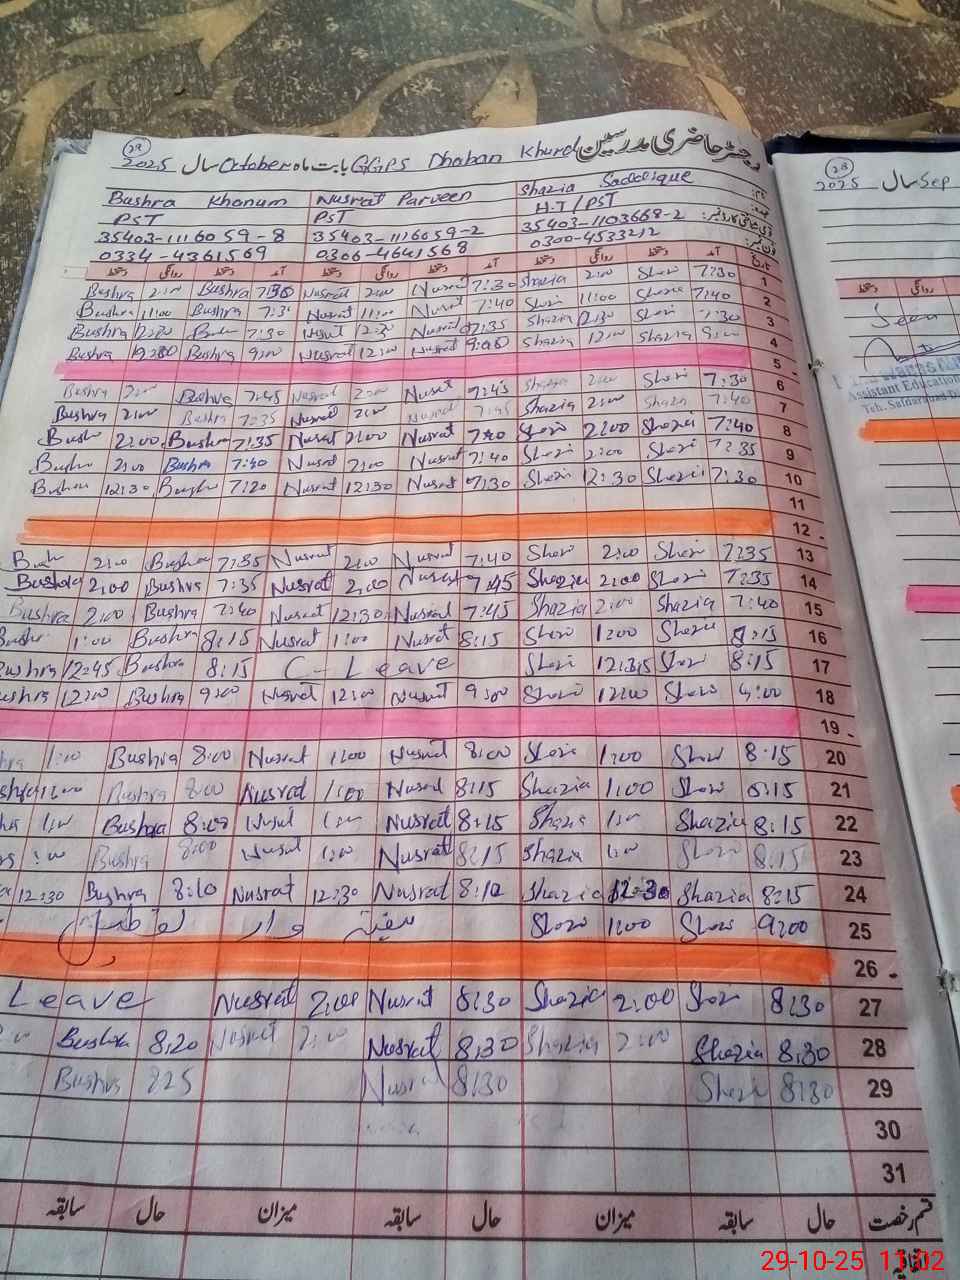 رجسٹر حاضری مدرسین GGPS Dhaban Khurd بابت ماہ October سال 2025
29
نام: Shazia Saddique Nusrat Parveen Bushra Khanum
عہدہ: H.T/PST PST PST
شناختی کارڈ نمبر: 35403-1103668-2 35403-1116059-2 35403-1116059-8
فون نمبر: 0300-4533212 0306-4641568 0334-4361569
تاریخ آمد دستخط روانگی دستخط آمد دستخط روانگی دستخط آمد دستخط روانگی دستخط
Bushra 2:00 Bushra 7:30 Nusrat 2:00 Nusrat 7:30 Shazia 2:00 Shazi 7:30 1
Bushra 11:00 Bushra Nusrat 11:00 Nusrat 7:40 Shazi 11:00 Shazia 7:40 2
Bushra 12:30 Bushra 7:30 Nusrat 12:30 Nusrat 7:35 Shazia 12:30 Shazi 7:30 3
Bushra Bushra 9:00 Nusrat 12:00 Nusrat 9:00 Shazia 12:00 Shazia 9:00 4
5
Bushra 2:00 Bushra 7:45 Nusrat 2:00 Nusrat 7:45 Shazia 2:00 Shazi 7:30 6
Bushra 2:00 Bushra 7:35 Nusrat 2:00 Nusrat 7:45 Shazia 2:00 Shazia 7:40 7
Bushr 2:00 Bushra 7:35 Nusrat 2:00 Nusrat 7:40 Shazi 2:00 Shazia 7:40 8
Bushr 2:00 Bushra 7:40 Nusrat 2:00 Nusrat 7:40 Shazi 2:00 Shazi 7:35 9
Bushra 12:30 Bushr 7:20 Nusrat 12:30 Nusrat 7:30 Shazi 12:30 Shazi 7:30 10
11
12
Bushr 2:00 Bushra 7:35 Nusrat 2:00 Nusrat 7:40 Shazi 2:00 Shazi 7:35 13
Bushra 2:00 Bushra 7:35 Nusrat 2:00 Nusrat 7:45 Shazia 2:00 Shazi 7:35 14
Bushra 2:00 Bushra 7:40 Nusrat 12:30 Nusrat 7:45 Shazia 2:00 Shazia 7:40 15
Bushr 1:00 Bushra 8:15 Nusrat 1:00 Nusrat 8:15 Shazi 1:00 Shazi 8:15 16
Bushra 12:45 Bushra 8:15 C-Leave Shazi Shazi 8:15 17
Bushra 12:00 Bushra 9:00 Nusrat 12:00 Nusrat 9:00 Shazi 12:00 Shazi 9:00 18
19
1:00 Bushra 8:00 Nusrat 1:00 Nusrat 8:00 Shazi 1:00 Shazi 8:15 20
Bushra 8:00 Nusrat 1:00 Nusrat 8:15 Shazia 1:00 Shazi 8:15 21
1:00 Bushra 8:00 Nusrat 1:00 Nusrat 8:15 Shazia 1:00 Shazia 8:15 22
Bushra 8:00 Nusrat 1:00 Nusrat 8:15 Shazia 1:00 Shazi 8:15 23
12:30 Bushra 8:10 Nusrat 12:30 Nusrat 8:10 Shazia 12:30 Shazia 8:15 24
ہفتہ وار تعطیل Shazi 1:00 Shazi 9:00 25
26
Leave Nusrat 2:00 Nusrat 8:30 Shazia 2:00 Shazi 8:30 27
Bushra 8:20 Nusrat 2:00 Nusrat 8:30 Shazia 2:00 Shazia 8:30 28
Bushra 825 Nusrat 8:30 Shazi 8:30 29
30
31
قسم رخصت حال سابقہ میزان حال سابقہ میزان حال سابقہ
اتفاقیہ
28
سال Sep 2025
دستخط روانگی
Assistant Education
Teh. Safdarabad
29-10-25 11:02